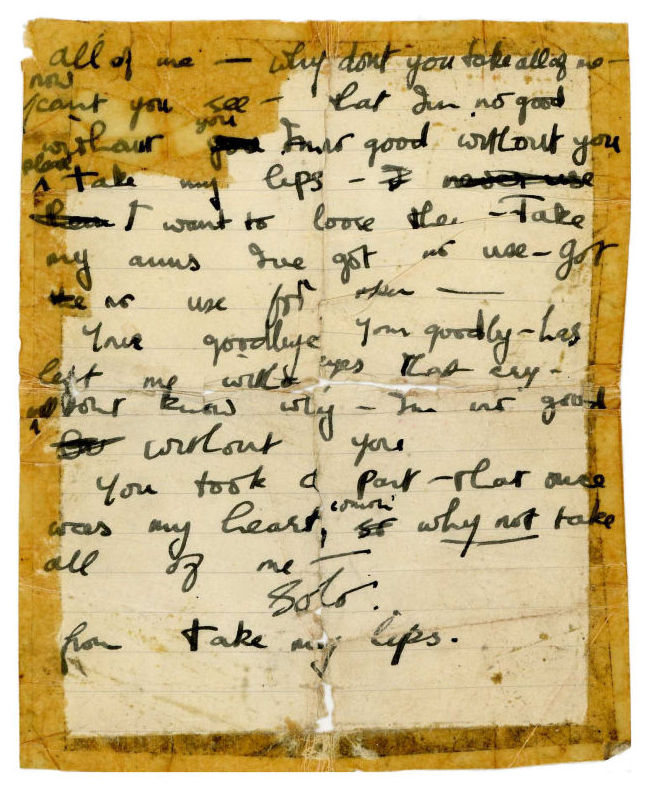 all of me — why dont you take all of me —
now
cant you see — that Im no good
without you Im no good without you
please
take my lips — I never use
them I want to loose them — Take
my arms Ive got no use — Got
no use for
Your goodbye Your goodby — has
left me with eyes that cry —
dont know why — Im no good
without you
You took a part — that once
was my heart, comon so why not take
all of me —
Solo.
from take my lips.